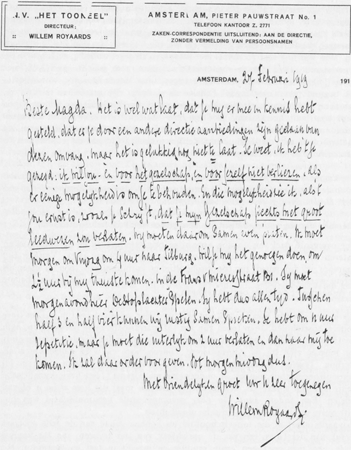 N.V. "HET TOONEEL"
DIRECTEUR:
WILLEM ROYAARDS
AMSTERDAM, PIETER PAUWSTRAAT No. 1
TELEFOON KANTOOR Z. 2771
ZAKEN-CORRESPONDENTIE UITSLUITEND: AAN DE DIRECTIE,
ZONDER VERMELDING VAN PERSOONSNAMEN
AMSTERDAM, 27 Februari 1919 191
Beste Magda. Het is wel wat laat, dat je mij er mee in kennis hebt
gesteld, dat er je door een andere directie aanbiedingen zijn gedaan van
dezen omvang, maar het is gelukkig nog niet te laat. Je weet, ik heb 't je
gezegd: ik wil jou - en voor het gezelschap, en voor mijzelf niet verliezen, als
er eenige mogelijkheid is om je te behouden. En die mogelijkheid is er, als 't
jou ernst is, zooals je schrijft, dat je mijn Gezelschap slechts met groot
leedwezen zou verlaten. Wij moeten daarom samen eens praten. Ik moet
morgen om vijf uur naar Tilburg. Wil je mij het genoegen doen om
2½ uur bij mij thuis te komen. in de Frans v Mierisstraat
morgenavond hier spelen. Je hebt dus allen tijd. Tusschen
half 3 en half vier kunnen wij rustig samen spreken. Je hebt om 11 uur
repetitie, maar je moet die uiterlijk om 2 uur verlaten en dan naar mij toe
komen. Ik zal daar order voor geven. Tot morgenmiddag dus.
Met vriendelijken groet Uw zeer toegenegen
Willem Royaards